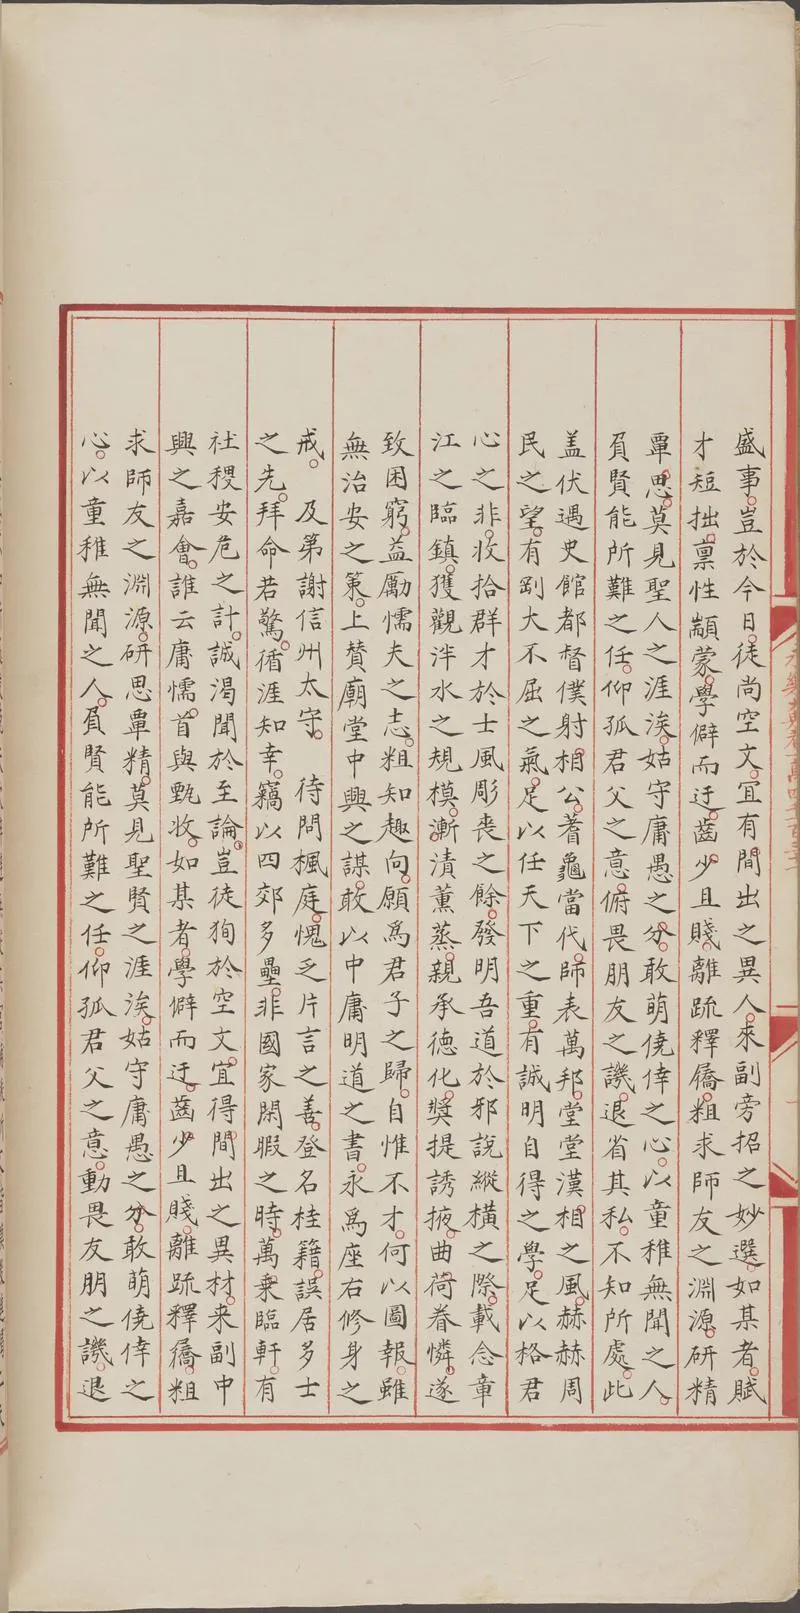 盛事。豈於今日。徒尚空文。宜有間出之異人。來副旁招之妙選。如某者。賦
才短拙。禀性顓蒙。學僻而迂。齒少且賤。離䟽釋𪨗。粗求師友之淵源。研精
覃思。莫見聖人之涯涘。姑守庸愚之分。敢萌僥倖之心。以童稚無聞之人。
負賢能所難之任。仰孤君父之意。俯畏朋友之譏。退省其私。不知所處。此
盖伏遇史館都督僕射相公。蓍龜當代。師表萬邦。堂堂漢相之風。赫赫周
民之望。有剛大不屈之氣。足以任天下之重。有誠明自得之學。足以格君
心之非。收拾群才於士風彫喪之餘。發明吾道於邪說縱横之際。載念章
江之臨鎮。獲觀泮水之規模。漸漬薰蒸。親承德化。奬提誘掖。曲荷眷憐。遂
致困窮。益勵懦夫之志。粗知趣向。願爲君子之歸。自惟不才。何以圖報。雖
無治安之策。上賛廟堂中興之謀。敢以中庸明道之書。永爲座右修身之
戒。 及第謝信州太守。 待問楓庭。愧乏片言之善。登名桂籍。誤居多士
之先。拜命若驚。循涯知幸。竊以四郊多壘。非國家閑暇之時。萬乗臨軒。有
社稷安危之計。誠渴聞於至論。豈徒狥於空文。宜得間出之異材。来副中
興之嘉會。誰云庸懦。首與甄收。如某者。學僻而迂。齒少且賤。離䟽釋𪨗。粗
求師友之淵源。研思覃精。莫見聖賢之涯涘。姑守庸愚之分。敢萌僥倖之
心。以童稚無聞之人。負賢能所難之任。仰孤君父之意。動畏友朋之譏。退